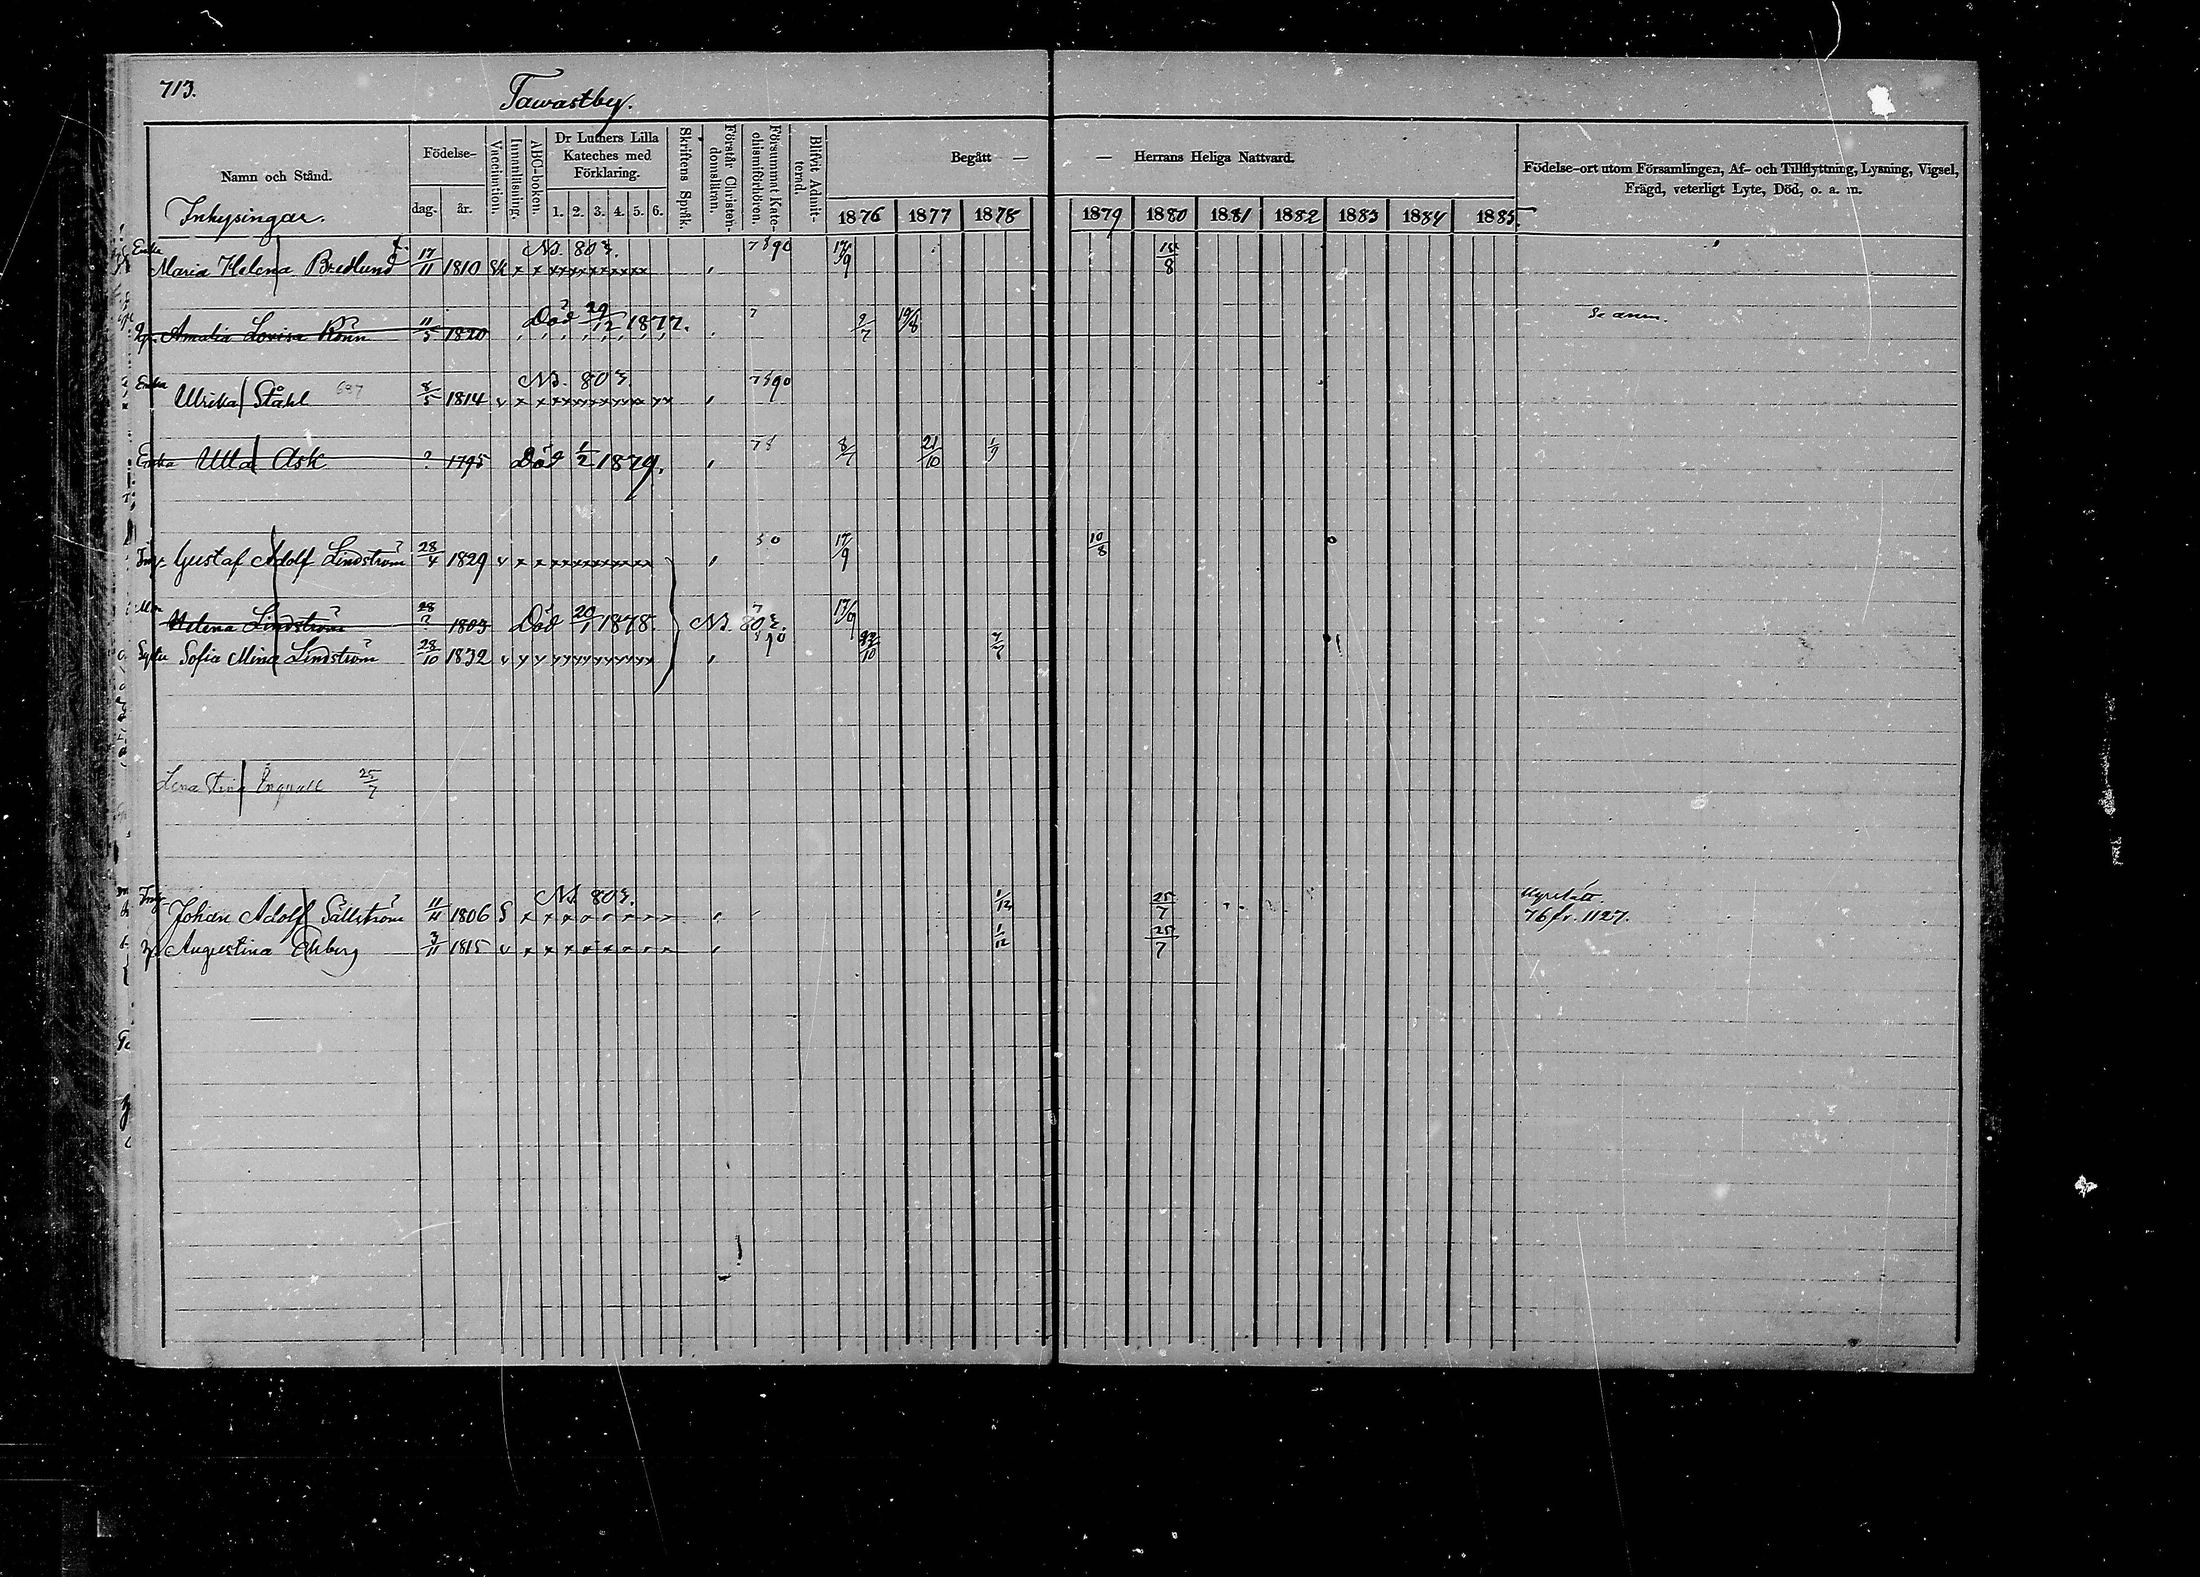 713.
Tawastby.
Namn och Stånd.
Födelse-
dag. år.
Vaccination.
Innanläsning.
ABC-boken.
Dr Luthers Lilla
Kateches med
Förklaring.
1. 2. 3. 4. 5. 6.
Skriftens Språk.
Förstår Christen-
domslären.
Försummat Kate-
chismiförhören.
Blifvit Admit-
terad.
Begått — — Herrans Heliga Nattvard.
1876 1877 1878 1879 1880 1881 1882 1883 1884 1885.
Födelse-ort utom Församlingen, Af- och Tillflyttning, Lysning, Vigsel,
Frägd, veterligt Lyte, Död, o. a. m.
Inhysingar.
Enka Maria Helena Bredlund 17/11 1810 N. 803. 7890 17/9 15/8
Amalia Lovisa Rönn 11/5 1820 Död 29/12 1877. 7 9/7 19/8
Enka Ulrika Ståhl 687 8/5 1814 v N. 803. 7890
Enka Ulla Ask ? 1795 Död 1/2 1879. 78 8/7 21/10 1/7
Inh. Gustaf Adolf Lindström 28/4 1829 v 17/9 10/8
Helena Lindström 28/? 1803 Död 20/1 1878. N. 803. 17/9
Syster Sofia Mina Lindström 28/10 1832 v 22/10 7/7
Lena Stina Engvall 25/7
Inh. Johan Adolf Sällström 11/11 1806 S N. 803. 1/12 25/7
76 fr. 1127.
Augustina Ekberg 3/11 1815 v 1/12 25/7